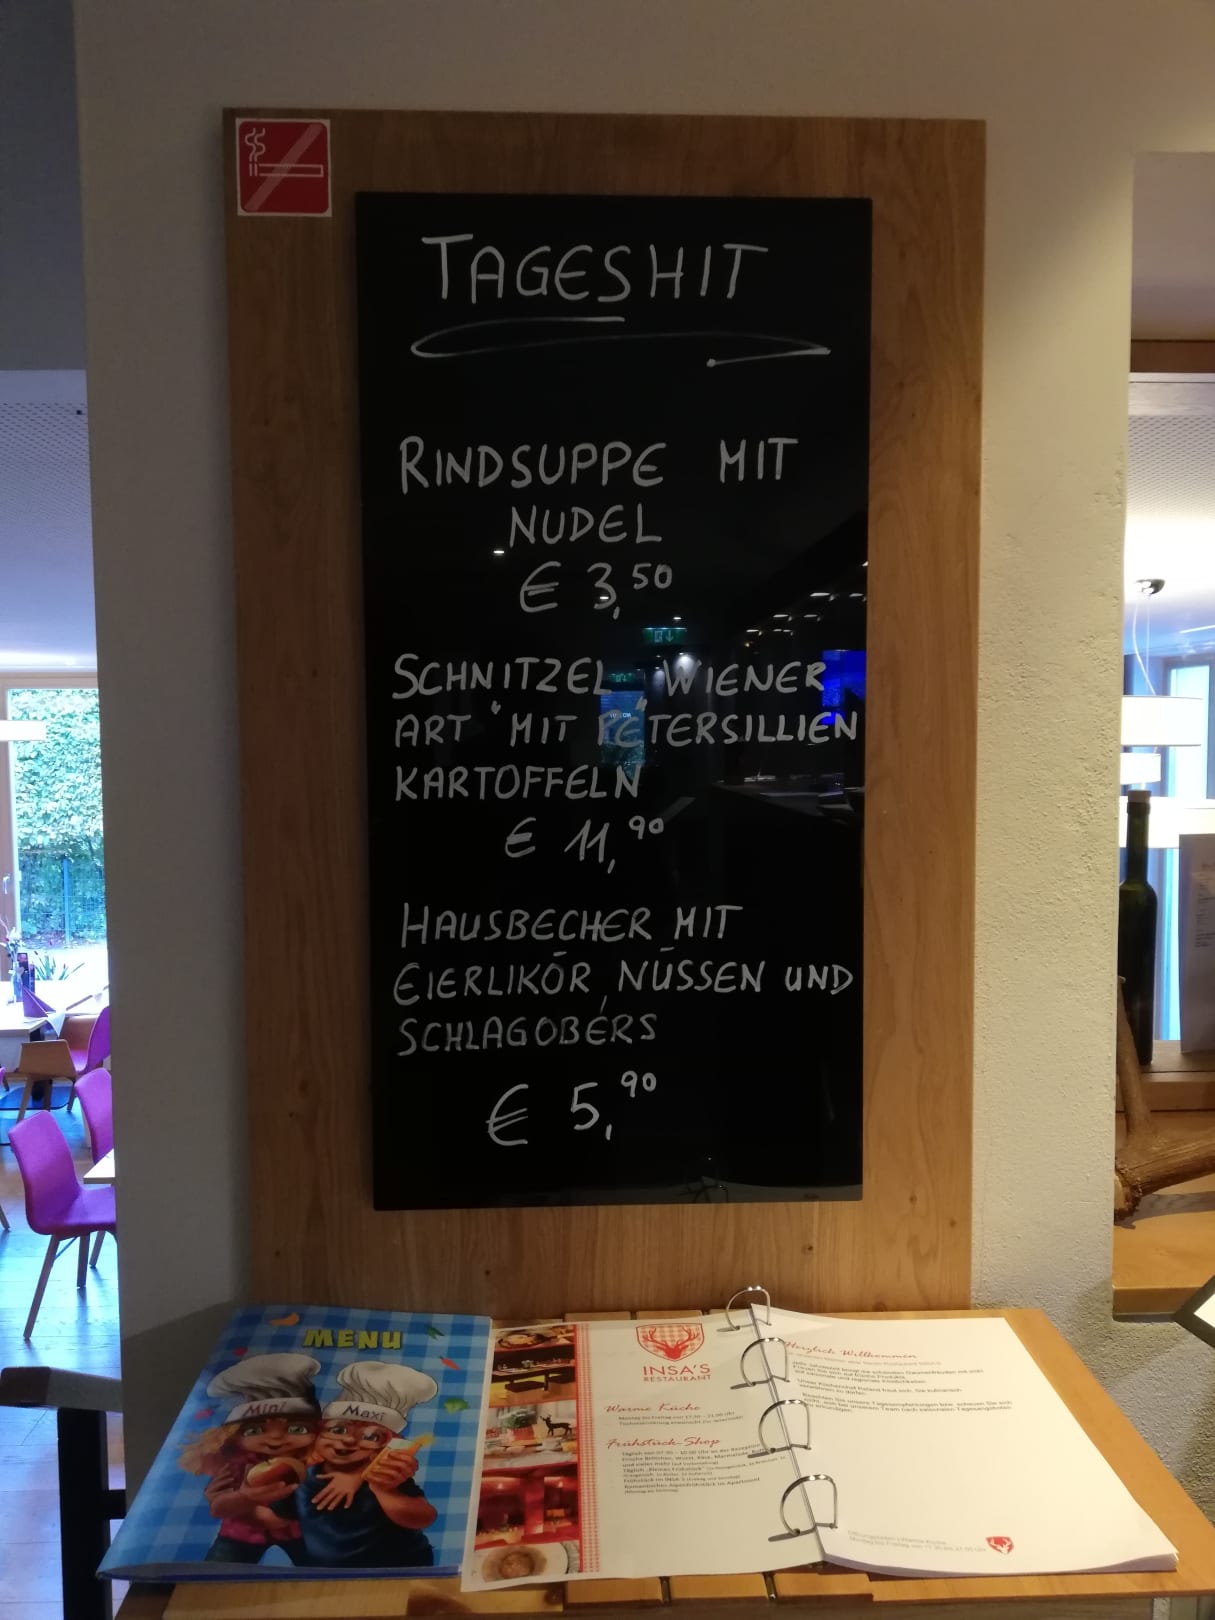 TAGESHIT
RINDSUPPE MIT
NUDEL
€ 3,50
SCHNITZEL „WIENER
ART“ MIT PETERSILLIEN
KARTOFFELN
€ 11,90
HAUSBECHER MIT
EIERLIKÖR, NÜSSEN UND
SCHLAGOBERS
€ 5,90
MENU
Mini Maxi
INSA'S
RESTAURANT
Warme Küche
Montag bis Freitag von 17.30 - 21.00 Uhr
Frühstück-Shop
Herzlich Willkommen